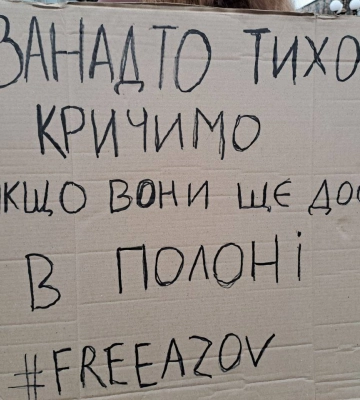 ЗАНАДТО ТИХО
КРИЧИМО
ЯКЩО ВОНИ ЩЄ ДОС
В ПОЛОНІ
#FREEAZOV